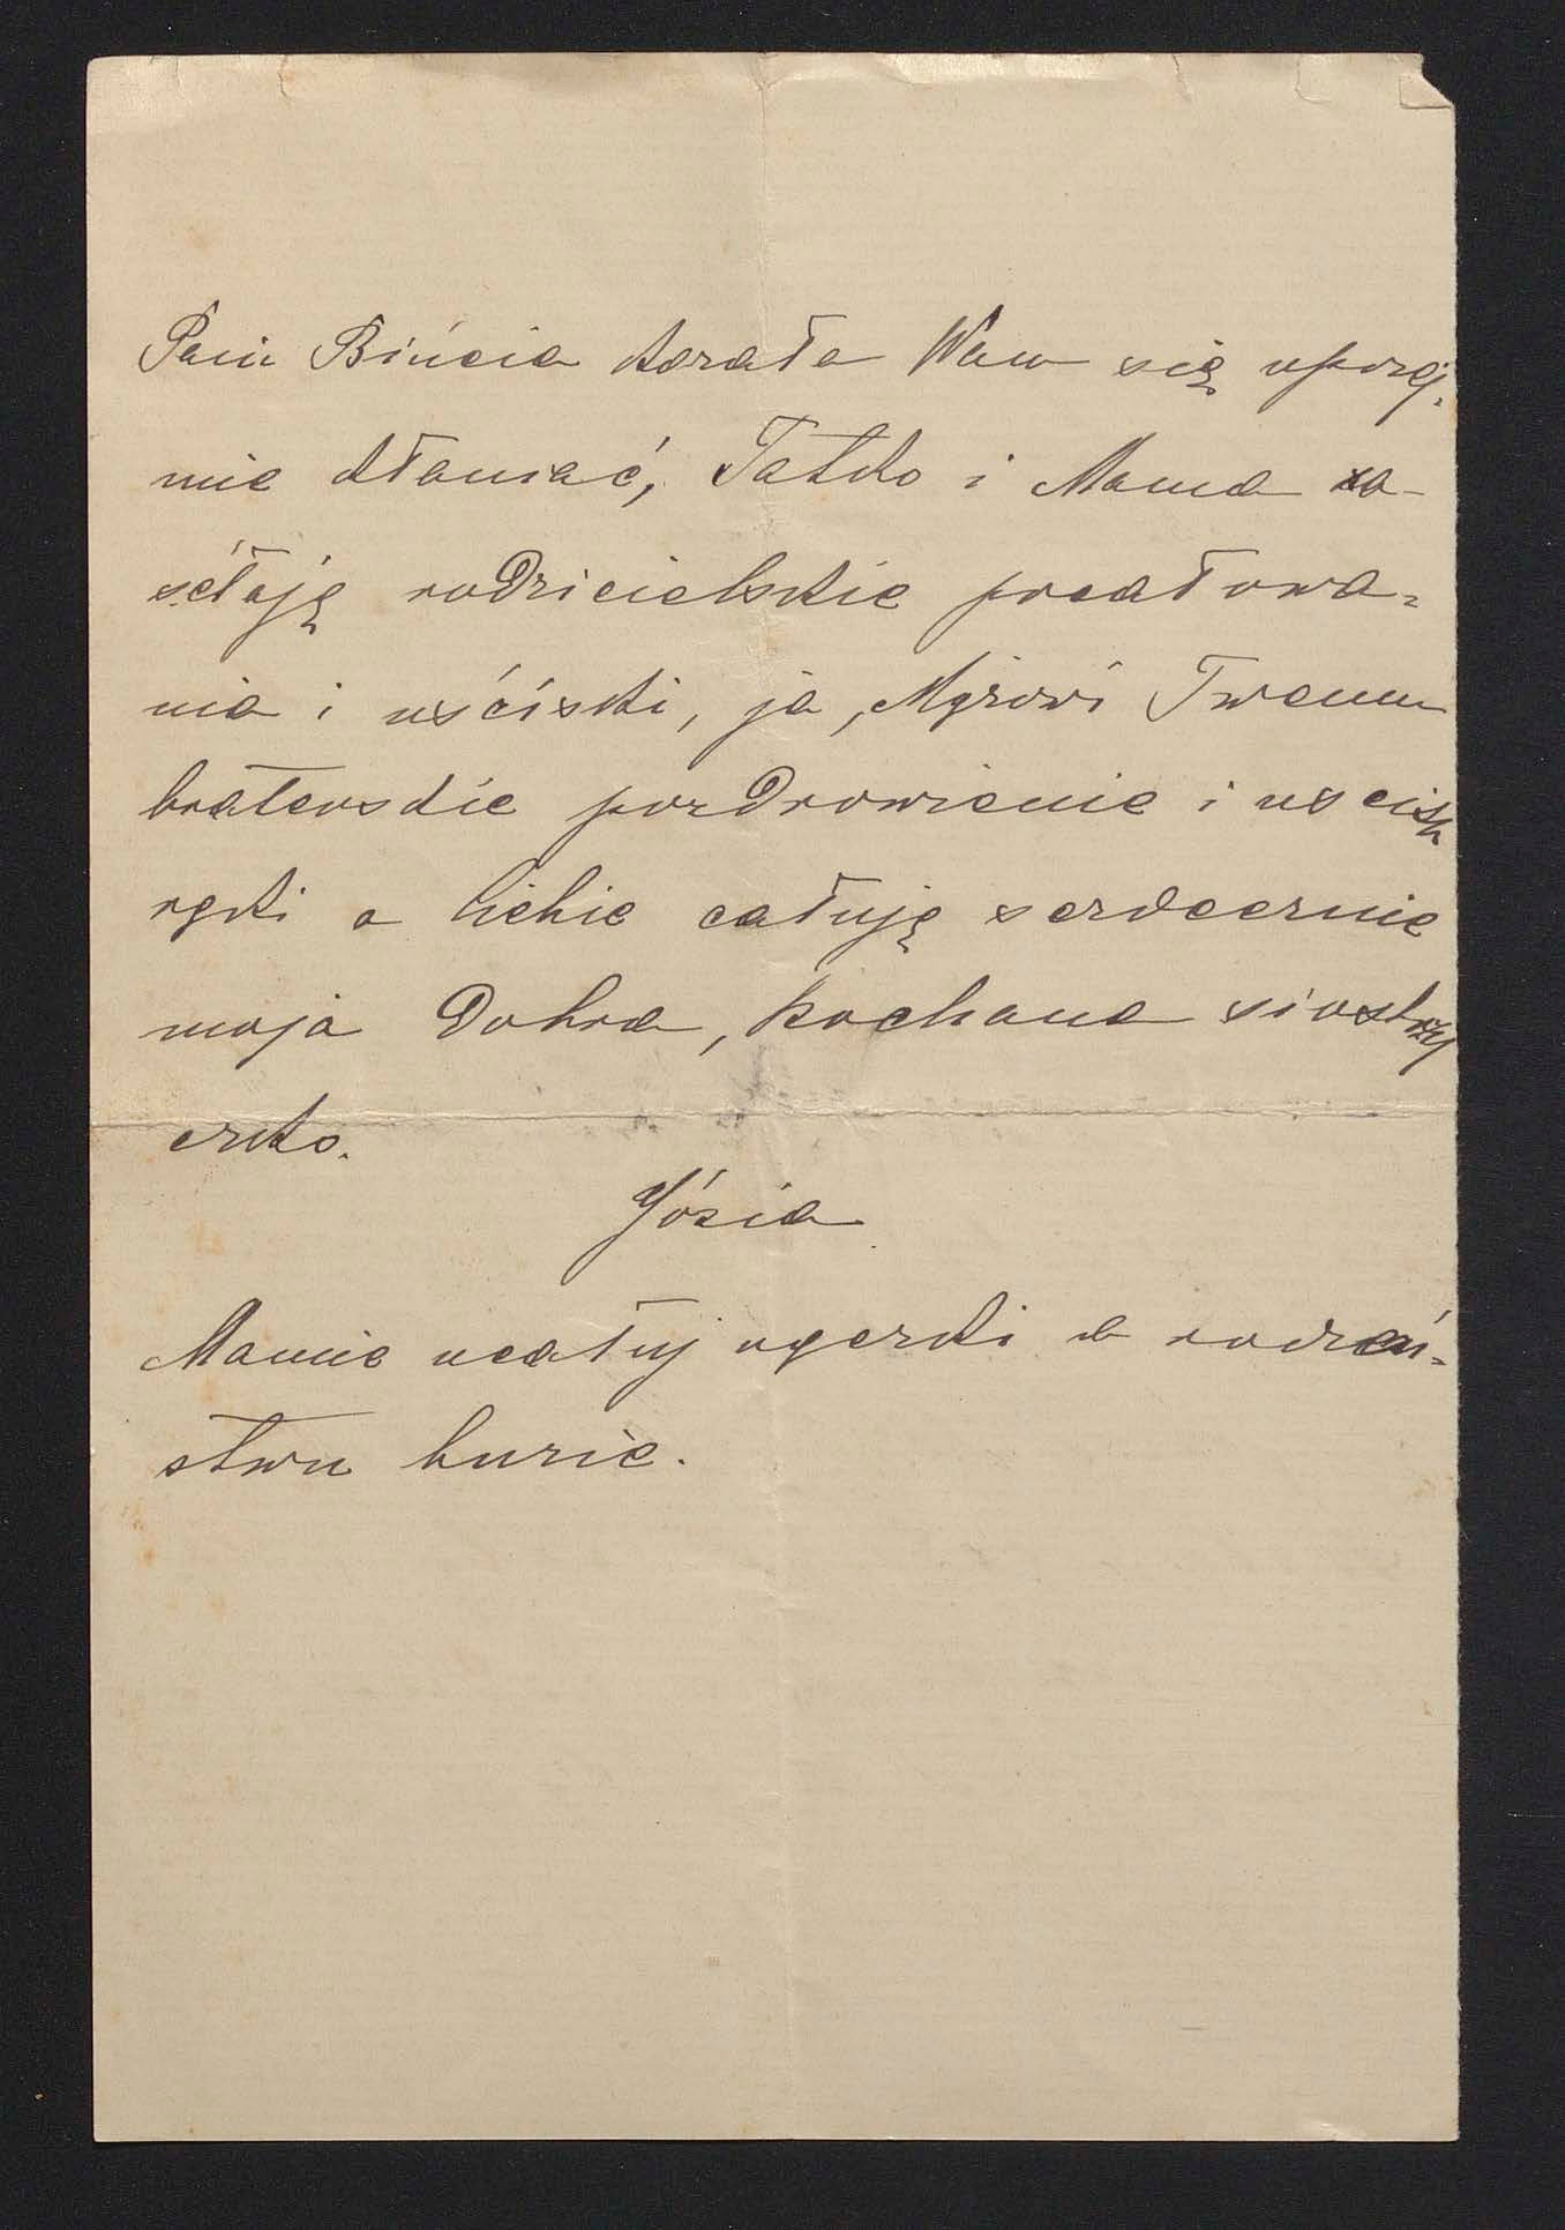 Pani Bińcia kazała Wam się uprzej-
mie kłaniać, Tatko i Mama za-
sełają rodzicielskie pocałowa-
nia i uściski, ja, Mężowi Twemu
braterskie pozdrowienie i uścisk
ręki a Ciebie całuję serdecznie
moja Dobra, kochana siostrzy
czko.
Józia
Mamie ucałuj rączki a rodzeń-
stwu buzie.